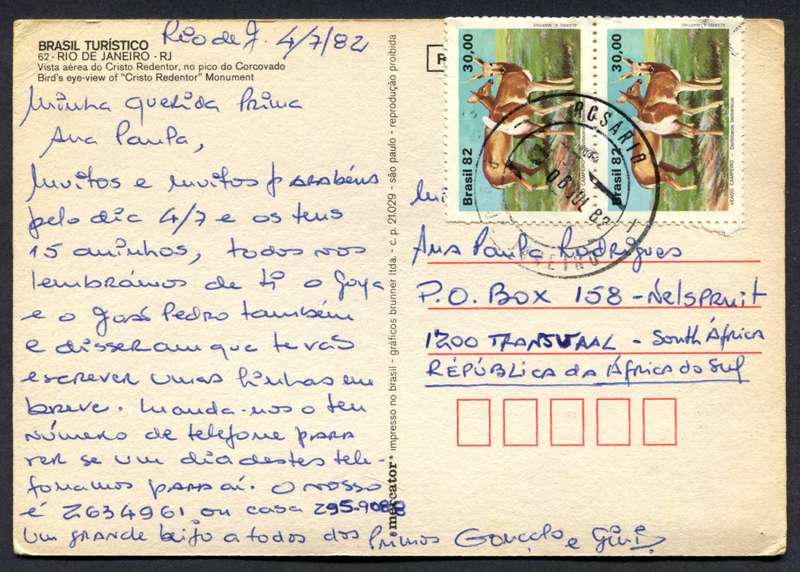 BRASIL TURÍSTICO
62 - RIO DE JANEIRO - RJ
Vista aérea do Cristo Redentor, no pico do Corcovado
Bird's eye-view of "Cristo Redentor" Monument
Rio de J. 4/7/82
Minha querida Prima
Ana Paula,
Muitos e muitos parabéns
pelo dia 4/7 e os teus
15 aninhos, todos nos
lembrámos de ti o Guga
e o José Pedro também
e disseram que te vás
escrever umas linhas em
breve. Manda-nos o teu
número de telefone para
ver se um dia destes tele-
fonamos para aí. O nosso
é 2634961 ou casa 295.9088
Um grande beijo a todos dos Primos Gonçalo e Gini
mercator® impresso no brasil - gráficos brunner ltda. - c.p. 21029 - são paulo - reprodução proibida
Brasil 82 30,00
Brasil 82 30,00
VEADO CAMPEIRO
ROSÁRIO
06 JUL 82
Ana Paula Rodrigues
P.O. BOX 158 - Nelspruit
1200 TRANSVAAL - South África
REPÚBLICA DA ÁFRICA do Sul